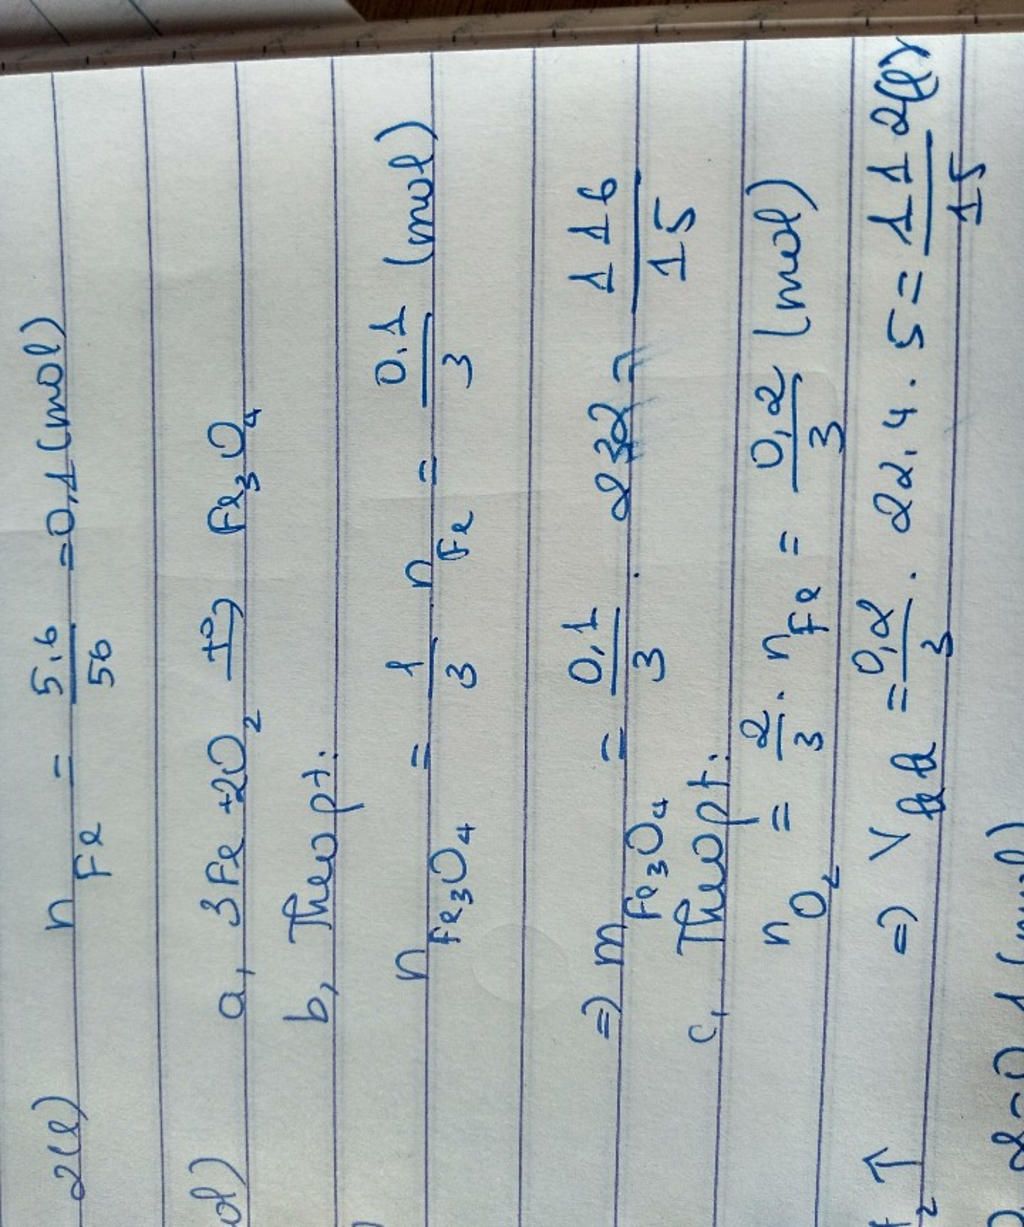 2(l) n Fe = 5,6/56 = 0,1 (mol)
a, 3Fe + 2O2 t° → Fe3O4
b, Theo pt:
n Fe3O4 = 1/3 n Fe = 0,1/3 (mol)
=> m Fe3O4 = 0,1/3 . 232 = 116/15
c, Theo pt:
n O2 = 2/3 . n Fe = 0,2/3 (mol)
=> V kk = 0,2/3 . 22,4 . 5 = 112/15 (l)